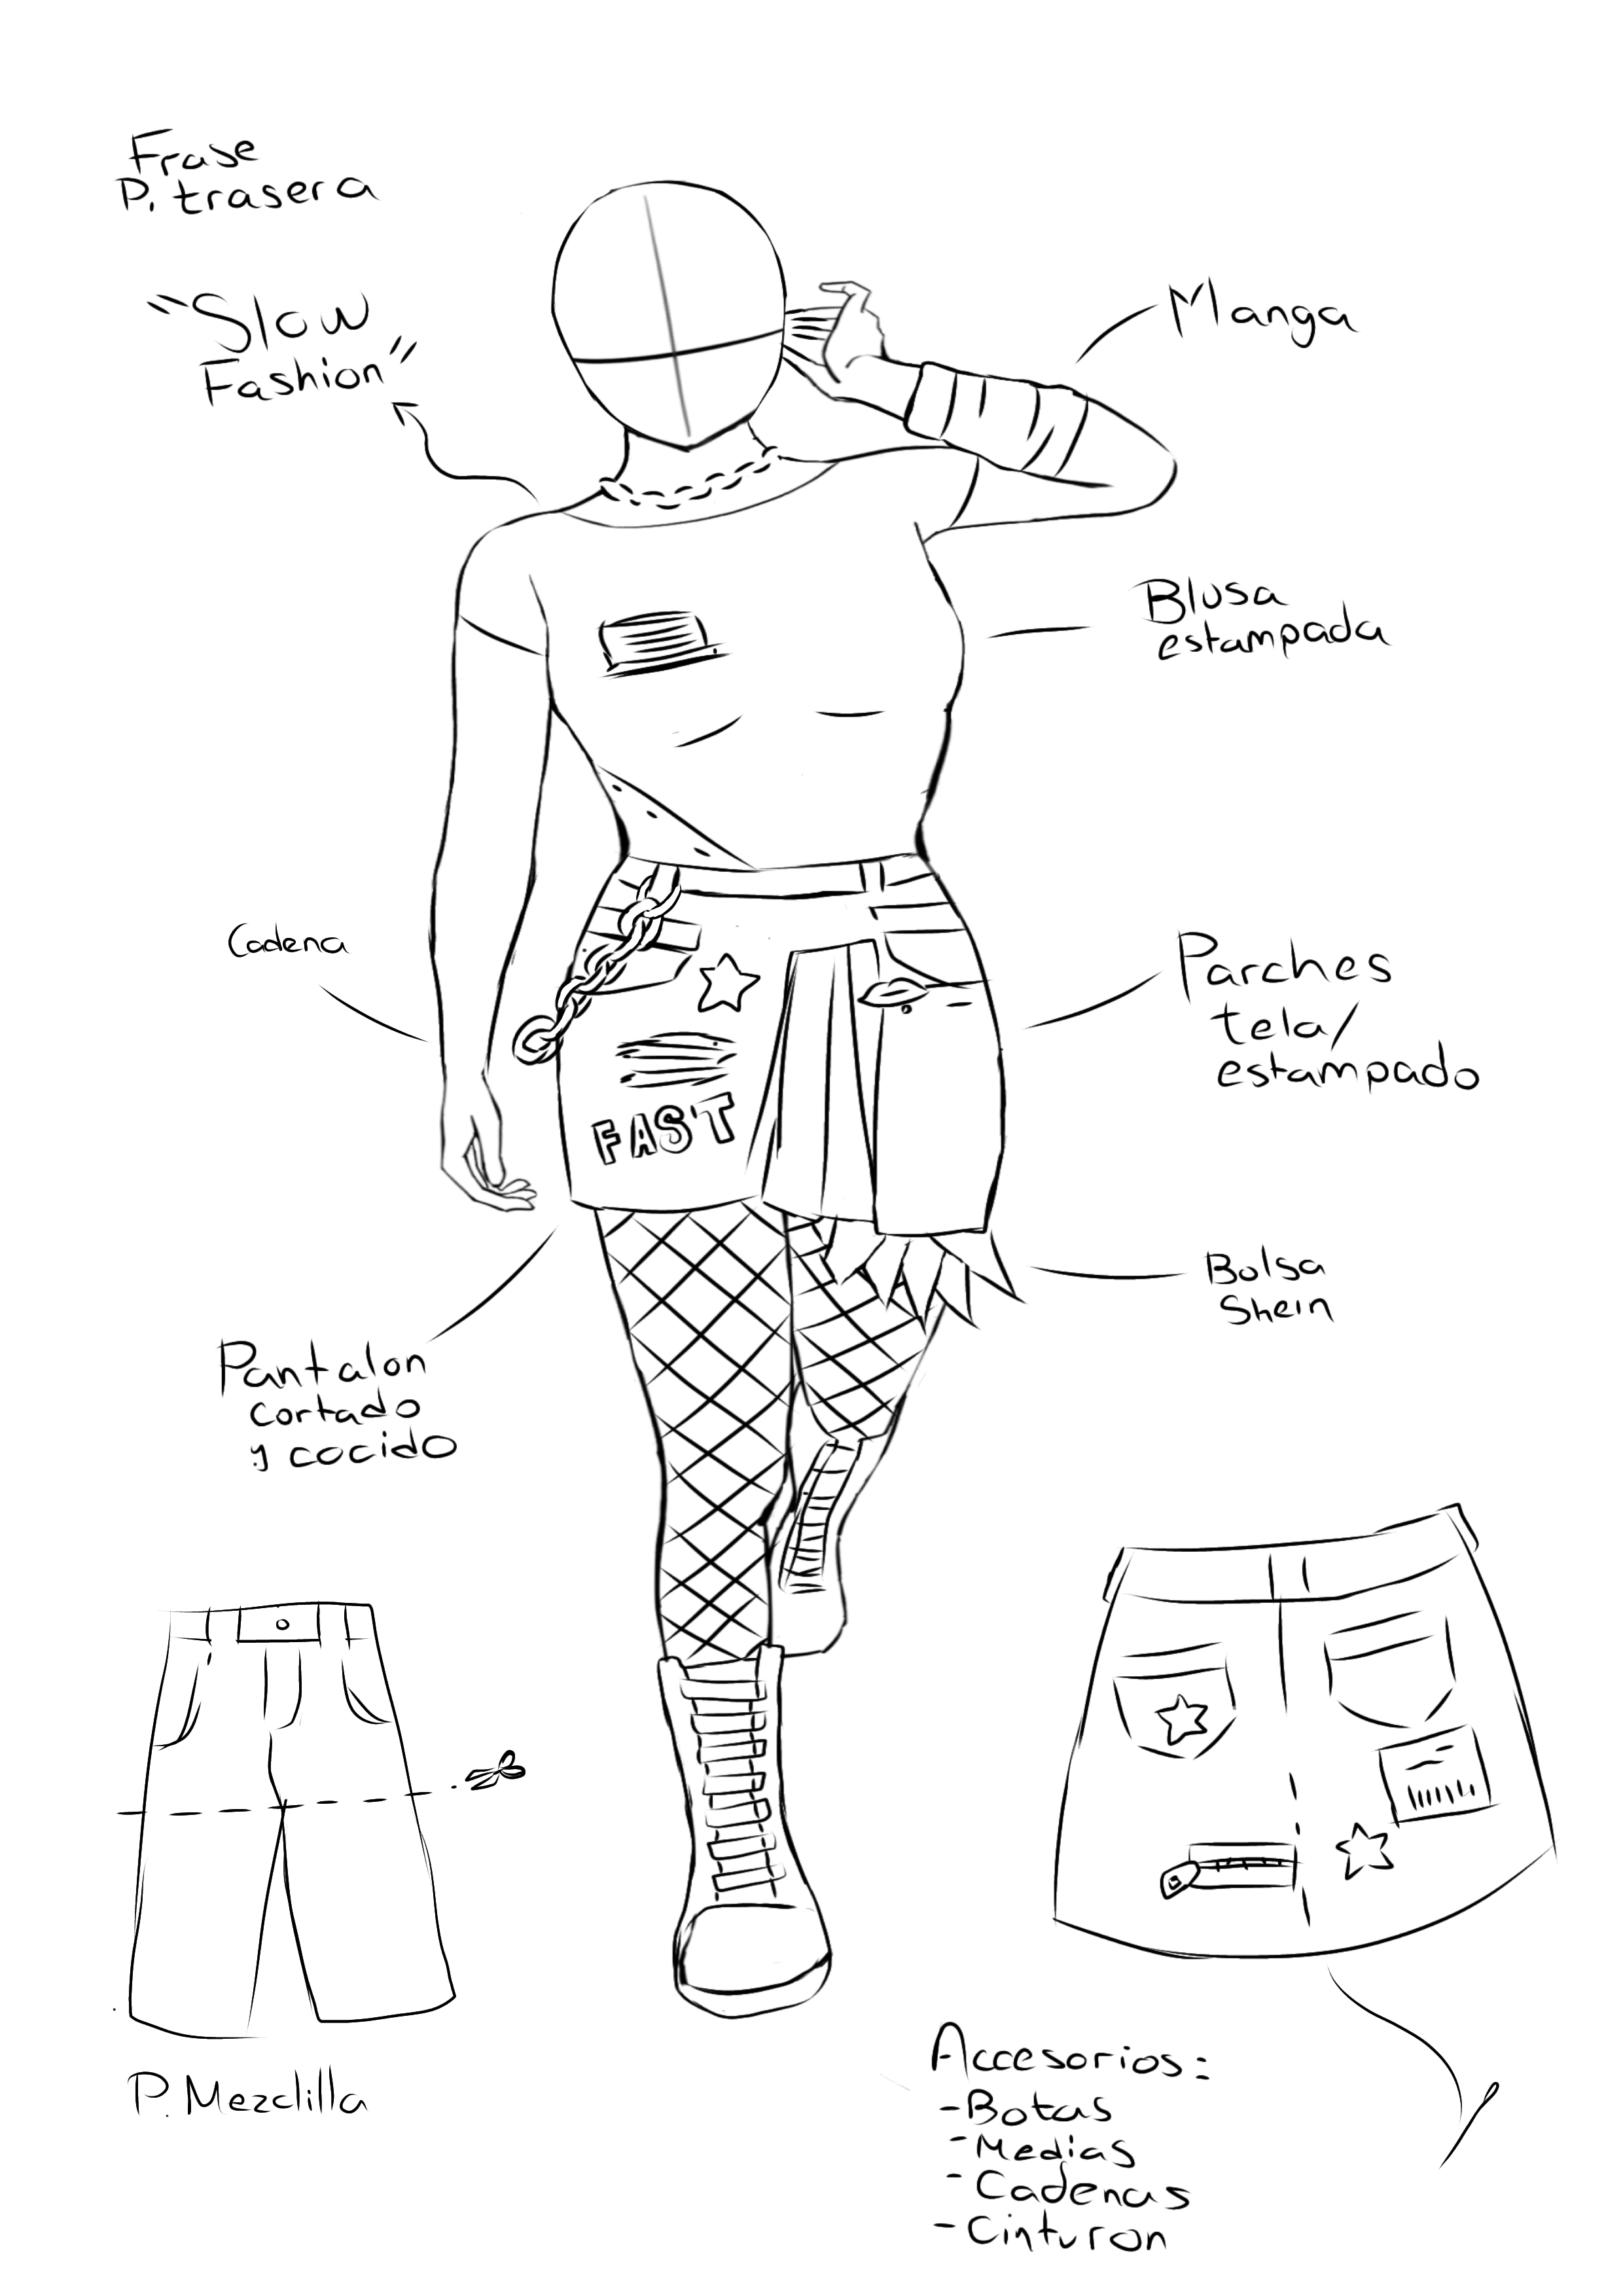 Frase
P. trasera
"Slow
Fashion"
Manga
Blusa
estampada
Cadena
Parches
tela/
estampado
FAST
Bolsa
Shein
Pantalon
cortado
y cocido
P. Mezclilla
Accesorios:
- Botas
- Medias
- Cadenas
- Cinturon